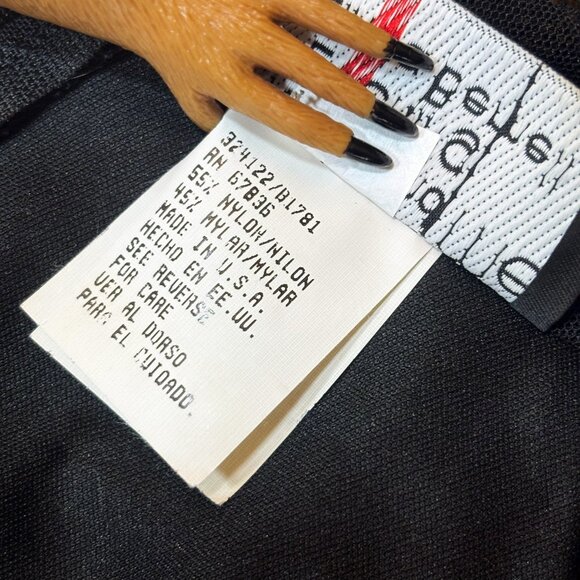 324122/B1781
RN 67836
55% NYLON/NILON
45% MYLAR/MYLAR
MADE IN U.S.A.
HECHO EN EE.UU.
SEE REVERSE
FOR CARE
VER AL DORSO
PARA EL CUIDADO.